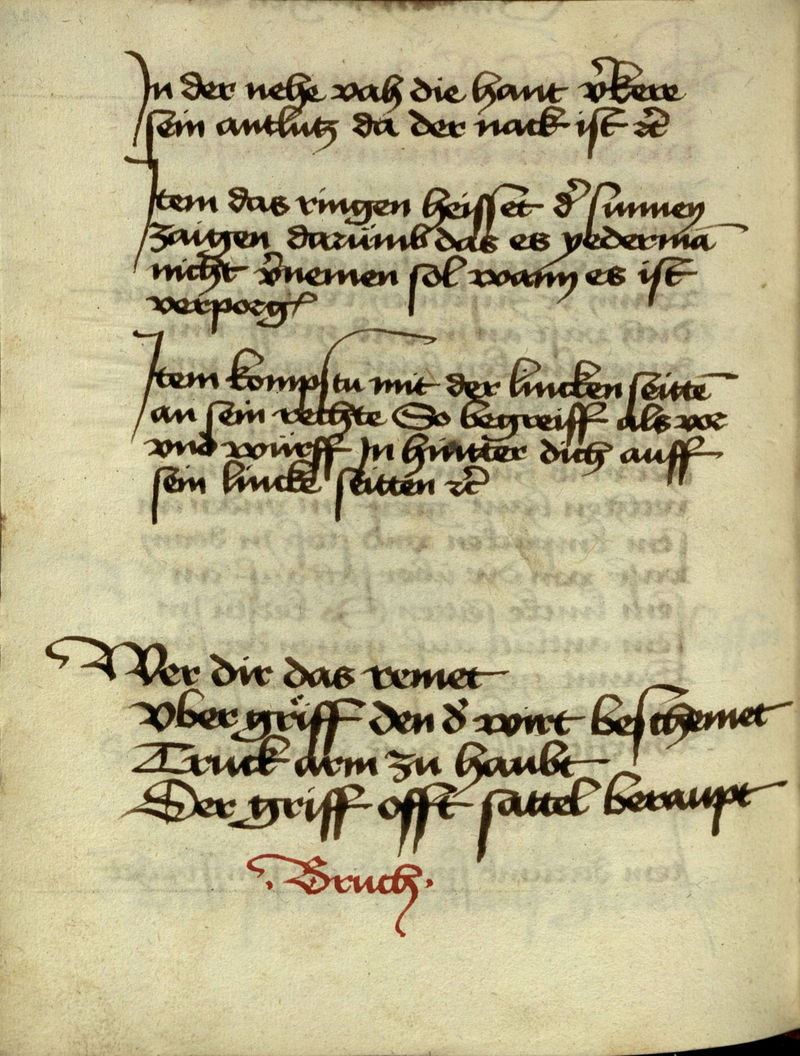 In der nehe vah die hant v̾kere
sein antlutz da der nack ist ꝛc̃
Item das ringen heisset d̾ sunnen
zaigen darumb das es yedermā
nicht v̾nemen sol wann es ist
verporgꝭ
Item kompstu mit der lincken seittē
an sein rechte So begreiff als vor
vnd wurff In hintter dich auff
sein lincke seitten ꝛc̃
Wer dir das remet
Vber griff den d̾ wirt beschemet
Truck arm zu haubt
Der griff offt sattel beraupt
.Bruch.